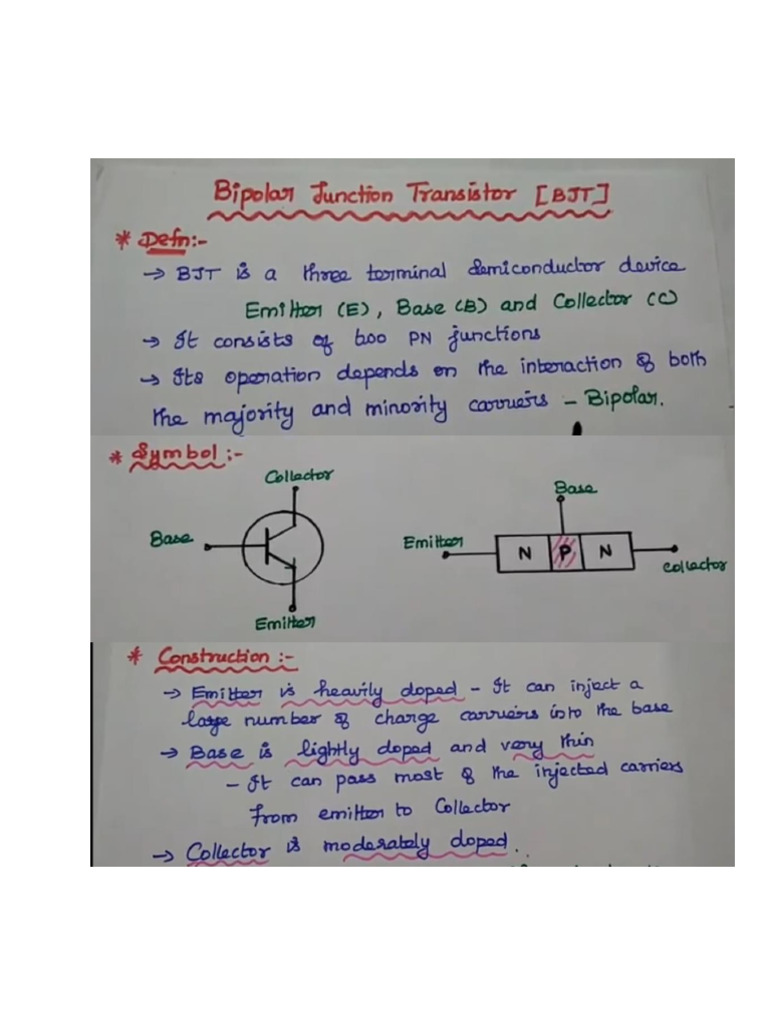 Bipolar Junction Transistor [BJT]
* Defn:-
→ BJT is a three terminal semiconductor device
Emitter (E), Base (B) and Collector (C)
→ It consists of two PN junctions
→ Its operation depends on the interaction of both
the majority and minority carriers - Bipolar.
* Symbol:-
Collector
Base
Emitter
Base
Emitter
N P N
Collector
* Construction:-
→ Emitter is heavily doped - It can inject a
large number of charge carriers into the base
→ Base is lightly doped and very thin
- It can pass most of the injected carriers
from emitter to Collector
→ Collector is moderately doped.